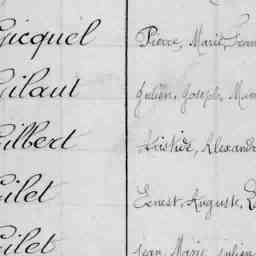 Gicquel Pierre, Marie,
Gilaut Julien, Joseph,
Gilbert Aristide, Alexandre
Gilet Ernest, Auguste,
Gilet Jean, Marie, Julien